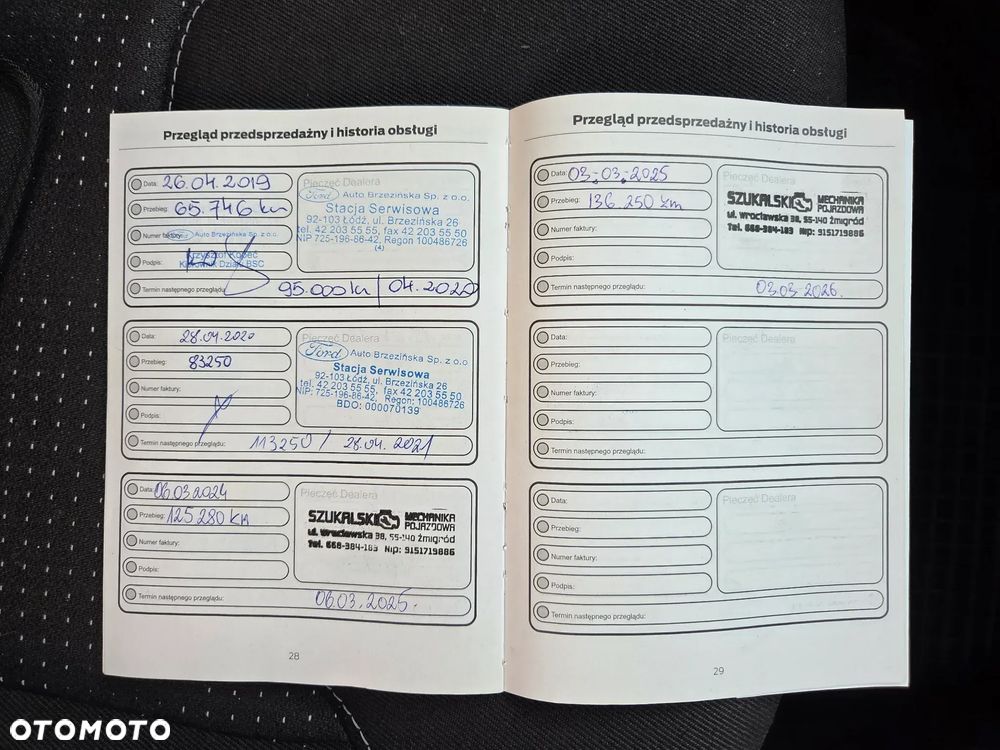 Przegląd przedsprzedażny i historia obsługi
Data: 26.04.2019
Przebieg: 65.746 km
Numer faktury:
Ford Auto Brzezińska Sp. z o.o.
Krzysztof Kopeć
Kierownik Działu BSC
Podpis:
Termin następnego przeglądu: 95.000 km / 04.2020
Pieczęć Dealera
Ford Auto Brzezińska Sp. z o.o.
Stacja Serwisowa
92-103 Łódź, ul. Brzezińska 26
tel. 42 203 55 55, fax 42 203 55 50
NIP 725-196-86-42, Regon 100486726
(4)
Data: 28.04.2020
Przebieg: 83250
Numer faktury:
Podpis:
Termin następnego przeglądu: 113250 / 28.04.2021
Pieczęć Dealera
Ford Auto Brzezińska Sp. z o.o.
Stacja Serwisowa
92-103 Łódź, ul. Brzezińska 26
tel. 42 203 55 55, fax 42 203 55 50
NIP: 725-196-86-42, Regon: 100486726
BDO: 000070139
Data: 06.03.2024
Przebieg: 125280 km
Numer faktury:
Podpis:
Termin następnego przeglądu: 06.03.2025.
Pieczęć Dealera
SZUKALSKI MECHANIKA POJAZDOWA
ul. Wrocławska 38, 55-140 Żmigród
Tel. 668-384-183 Nip: 9151719886
28
Przegląd przedsprzedażny i historia obsługi
Data: 03.03.2025
Przebieg: 136.250 km
Numer faktury:
Podpis:
Termin następnego przeglądu: 03.03.2026.
Pieczęć Dealera
SZUKALSKI MECHANIKA POJAZDOWA
ul. Wrocławska 38, 55-140 Żmigród
Tel. 668-384-183 Nip: 9151719886
Data:
Przebieg:
Numer faktury:
Podpis:
Termin następnego przeglądu:
Pieczęć Dealera
Data:
Przebieg:
Numer faktury:
Podpis:
Termin następnego przeglądu:
Pieczęć Dealera
29
OTOMOTO